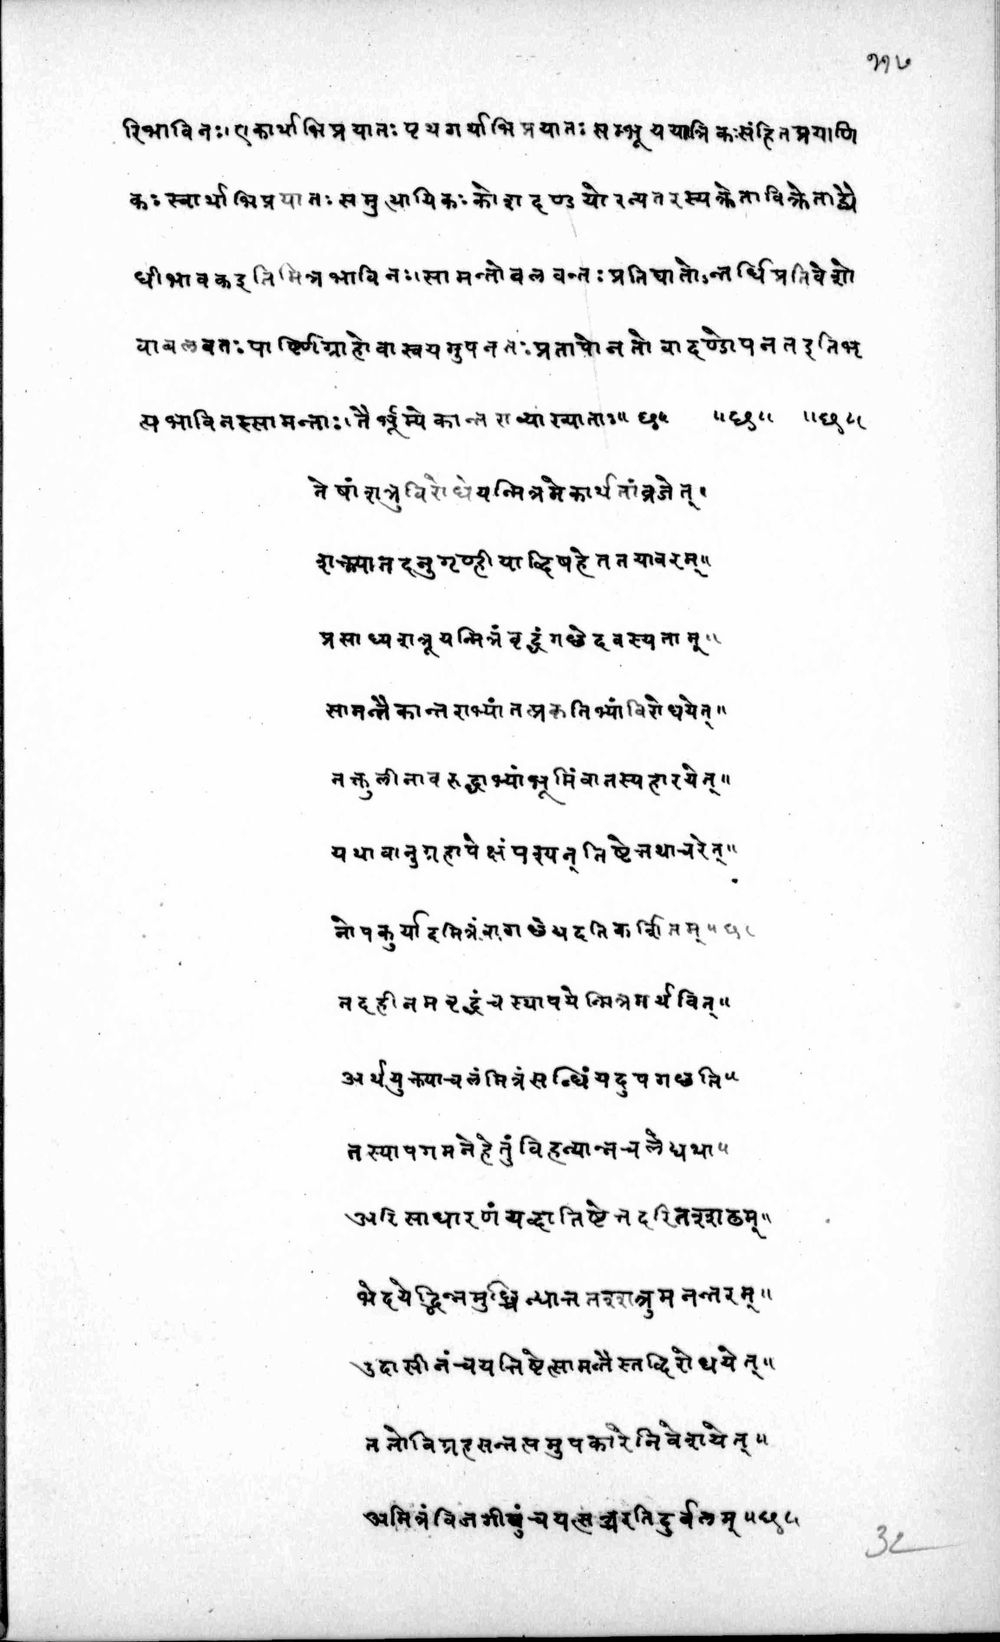 २१७
रिभाविनः।एकार्थाभिप्रयातः पृथगर्थाभिप्रयातः सम्भूययात्रिकःसंहितप्रयाणि
कः स्वार्थाभिप्रयातः समुत्थायिकः कोशदण्डयोरन्यतरस्यक्रेताविक्रेताद्वै
धीभावकइतिमित्रभाविनः।सामन्तोबलवन्तः प्रतिघातोऽन्तर्धिप्रतिवेशो
वाबलवतः पार्ष्णिग्राहोवास्वयमुपनतः प्रतापोनतोवादण्डोपनतइतिभृ
त्यभाविनस्सामन्ताः।तैर्भूम्येकान्तराव्याख्याताः॥
तेषांशत्रुविरोधेयन्मित्रमेकार्थतांव्रजेत्।
शक्त्यातदनुगृण्हीयाद्विषहेतनयावरम्॥
प्रसाध्यशत्रूयन्मित्रंवृद्धंगच्छेदवस्यताम्॥
सामन्तैकान्तराभ्यांतत्प्रकृतिभ्यांविरोधयेत्॥
तत्कुलीनावरुद्धाभ्यांभूमिंवातस्यहारयेत्॥
यथावानुग्रहापेक्षंपश्यन्तिष्टेत्तथाचरेत्॥
नोपकुर्यादमित्रंवागच्छेद्यदतिकर्शितम्॥
तदहीनमवृद्धंचस्थापयेन्मित्रमर्थवित्॥
अर्थयुक्त्याचलंमित्रंसन्धिंयदुपगच्छति॥
तस्यापगमनेहेतुंविहन्यान्नचलेद्यथा॥
अरिसाधारणंयद्वातिष्टेत्तदरितश्शठम्॥
भेदयेद्भिन्नमुच्छिन्द्यात्ततश्शत्रुमनन्तरम्॥
उदासीनंचयत्तिष्टेत्सामन्तैस्तद्विरोधयेत्॥
ततोविग्रहसन्तप्तमुपकारेनिवेशयेत्॥
अमित्रंविजगीषुंचयत्सञ्चरतिदुर्बलम्॥